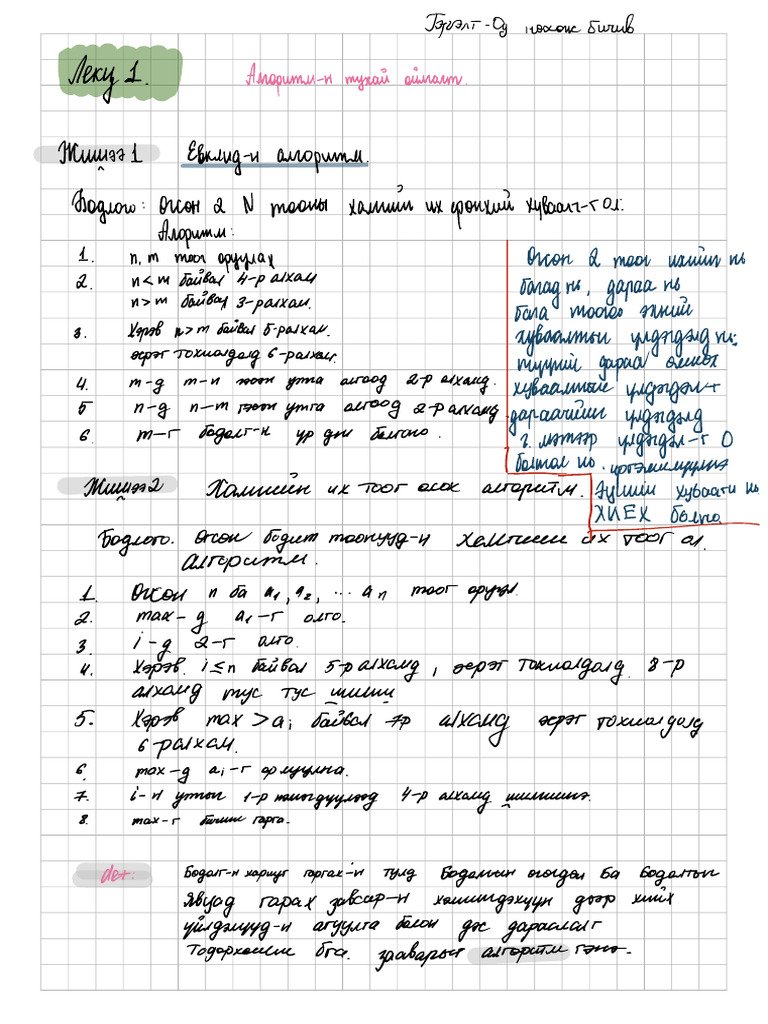 Гэрэлт-Од нөхөж бичив
Лекц 1.
Алгоритм-н тухай ойлголт.
Жишээ 1 Евклид-н алгоритм.
Бодлого: Өгсөн 2 N тооны хамгийн их ерөнхий хуваагч-г ол.
Алгоритм:
1. n, m тоог оруулах
2. n < m байвал 4-р алхам
n > m байвал 3-р алхам.
3. Хэрэв n > m байвал 5-р алхам.
эсрэг тохиолдолд 6-р алхам.
4. m-д m-n утга олгоод 2-р алхамд.
5 n-д n-m утга олгоод 2-р алхамд
6 m-г бодлт-н үр дүн болгоно.
Өгсөн 2 тоог ихийг нь
багад нь, дараа нь
бага тоогоо эхний
хуваалтын үлдэгдэлд нь;
түүний дараа өмнөх
хуваалтыг үлдэгдэл-г
дараагийн үлдэгдэлд
г. мэтээр үлдэгдэл-г 0
болтол нь үргэлжлүүлнэ
хуваагч нь
ХИЕХ болно.
Жишээ 2 Хамгийн их тоог олох алгоритм.
Бодлого. Өгсөн бодит тоонууд-н хамгийн их тоог ол.
алгоритм.
1. Өгсөн n ба a1, a2, ... an тоог оруул.
2. max-д a1-г олго.
3 i-д 2-г олго.
4. Хэрэв i ≤ n байвал 5-р алхамд, эсрэг тохиолдолд 8-р
алхамд тус тус шилжи
5. Хэрэв max > ai байвал 7р алхамд эсрэг тохиолдолд
6-р алхам.
6. max-д ai-г орлуулна.
7. i-н утгыг 1-р нэмэгдүүлээд 4-р алхамд шилжинэ.
8. max-г бичиж гарга.
def: Бодлт-н хариуг гаргах-н тулд Бодлогын өгөгдөл ба бодолтын
явцад гарах завсар-н хэмжигдэхүүн дээр хийх
үйлдэлүүд-н агуулга болон дэс дараалалт
Тодорхойлж буй зааварыг алгоритм гэнэ.